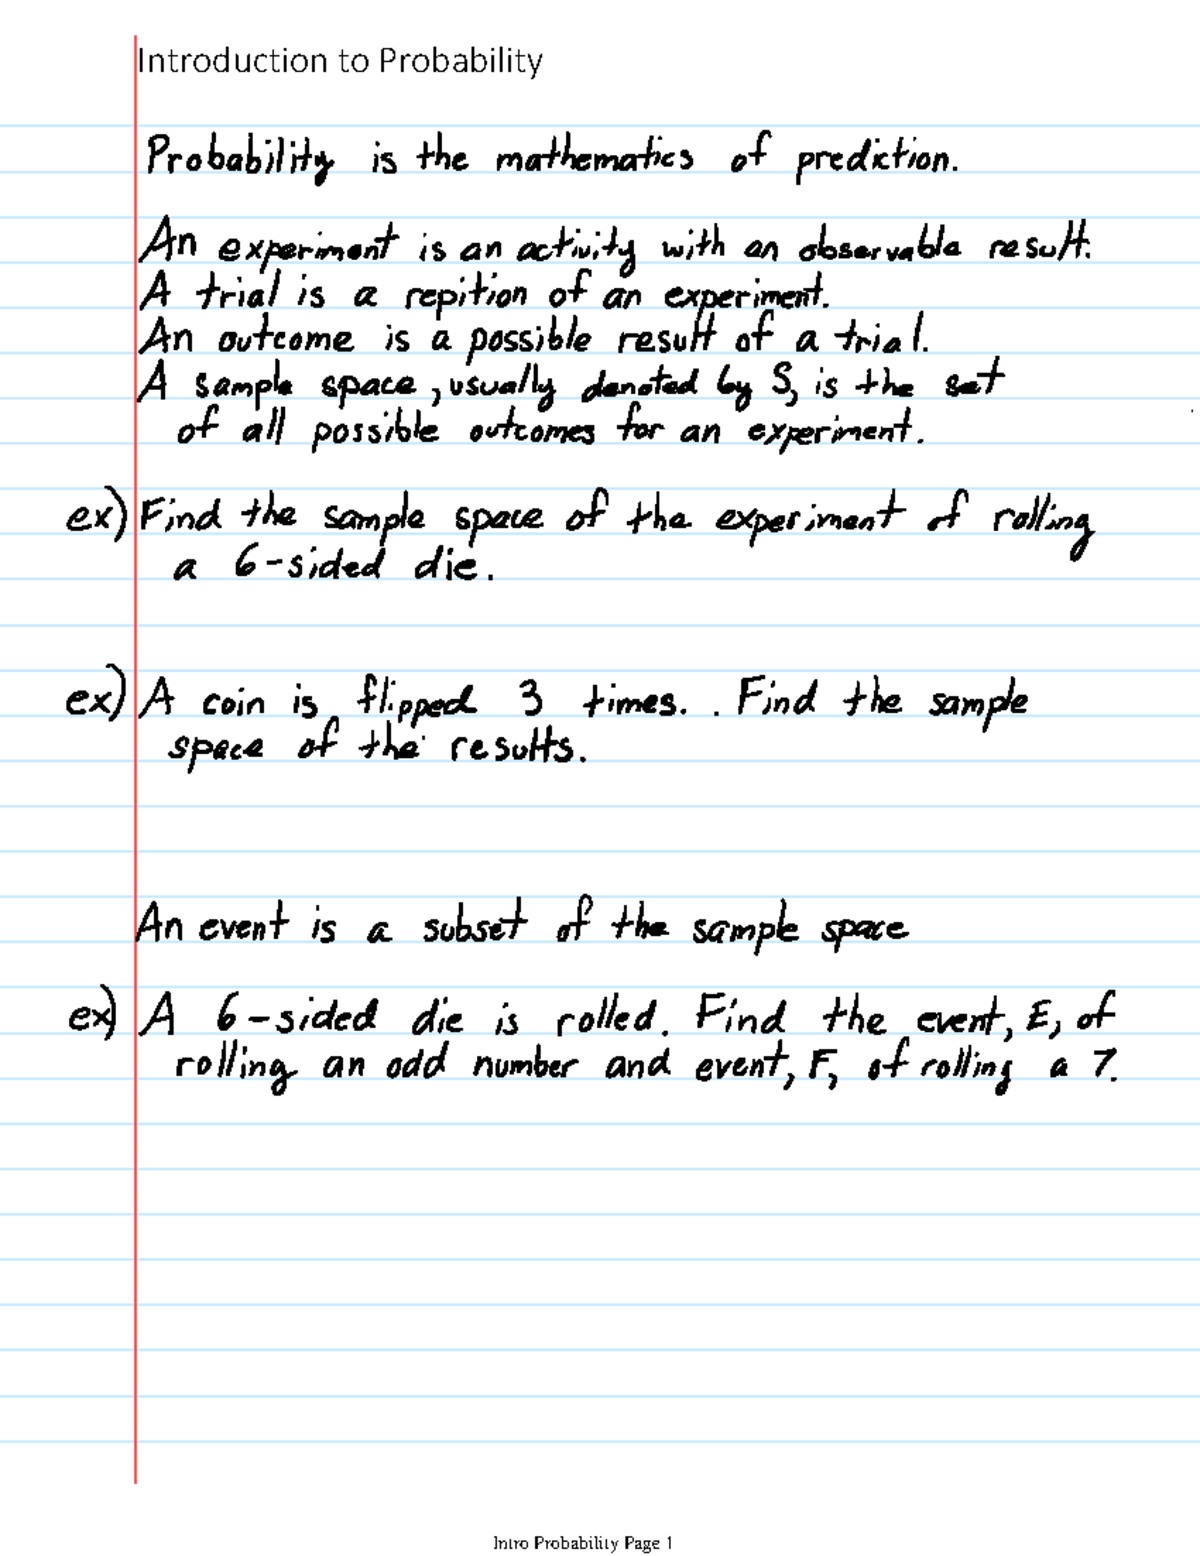 Introduction to Probability
Probability is the mathematics of prediction.
An experiment is an activity with an observable result.
A trial is a repition of an experiment.
An outcome is a possible result of a trial.
A sample space, usually denoted by S, is the set
of all possible outcomes for an experiment.
ex) Find the sample space of the experiment of rolling
a 6-sided die.
ex) A coin is flipped 3 times. . Find the sample
space of the results.
An event is a subset of the sample space
ex) A 6-sided die is rolled. Find the event, E, of
rolling an odd number and event, F, of rolling a 7.
Intro Probability Page 1